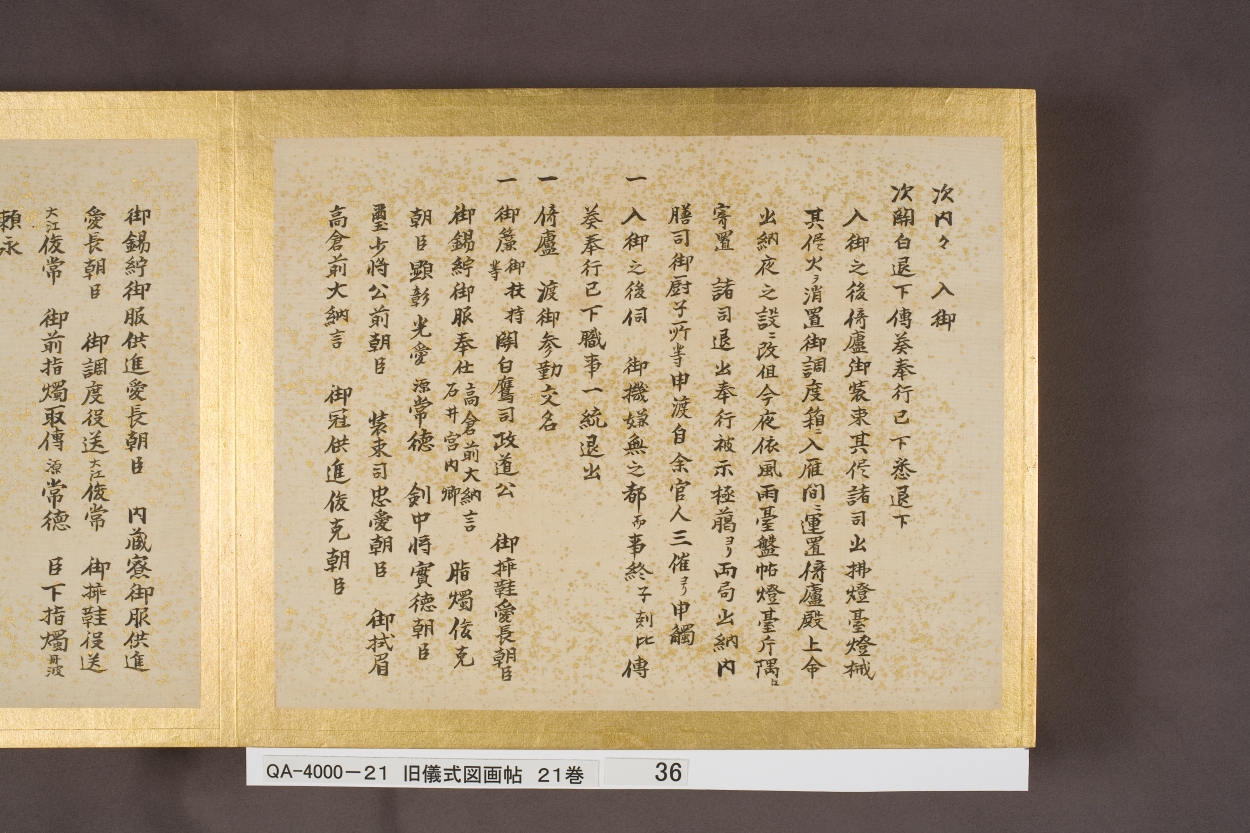 次内々　入御
次關白退下傳葵奉行已下悉退下
入御之後倚廬御裝束其修諸司出拂燈臺燈械
其修火ヲ消置御調度箱ニ入雁間ニ運置倚廬殿上侖
出納夜之設ニ改但今夜依風雨臺盤帖燈臺片隅ニ
寄置　諸司退出奉行被示極﨟ヨリ両局出納内
膳司御厨子所等申渡自余官人三催ヨリ申觸
一　入御之後伺　御機嫌無之都而事終子剋比傳
葵奉行已下職事一統退出
一　倚廬　渡御参勤交名
一　御簾御杖持等　關白鷹司政道公　御挿鞋愛長朝臣
御錫紵御服奉仕高倉前大納言石井宮内卿　脂燭俊克
朝臣顯彰光愛源常德　劍中將實德朝臣
璽少將公前朝臣　裝束司忠愛朝臣　御拭眉
高倉前大納言　御冠供進俊克朝臣
御錫紵御服供進愛長朝臣　内蔵寮御服供進
愛長朝臣　御調度役送大江俊常　御挿鞋役送
大江俊常　御前指燭取傳源常德　臣下指燭丹波
頼永
QA-4000-21　旧儀式図画帖　21巻　36